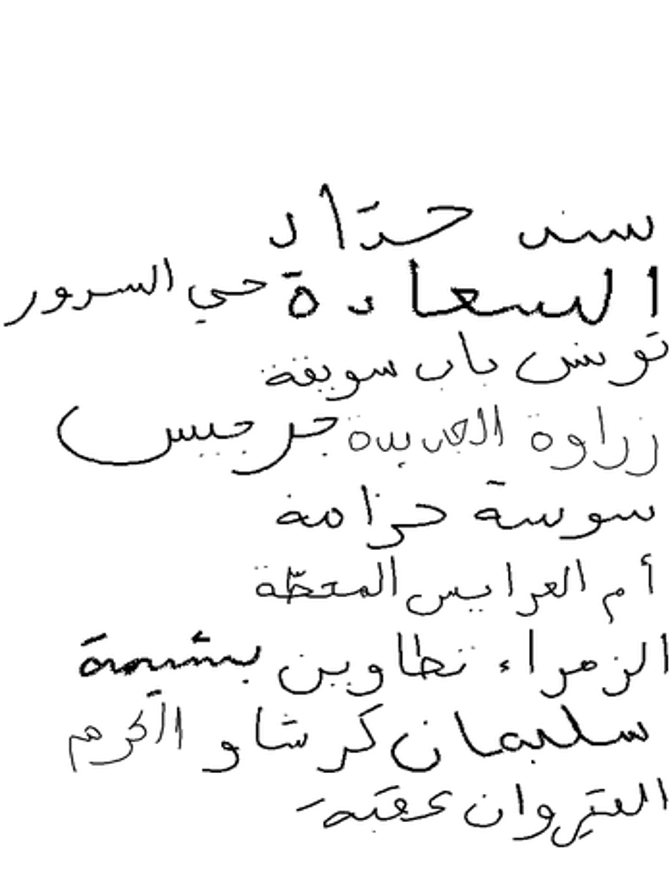 سند حدّاد
السعادة حي السرور
تونس باب سويقة
زراوة الجديدة جرجيس
سوسة حزامة
أم العرايس المحطّة
الزهراء تطاوين بشيمة
سليمان كرشاو الكرم
القيروان عقبة